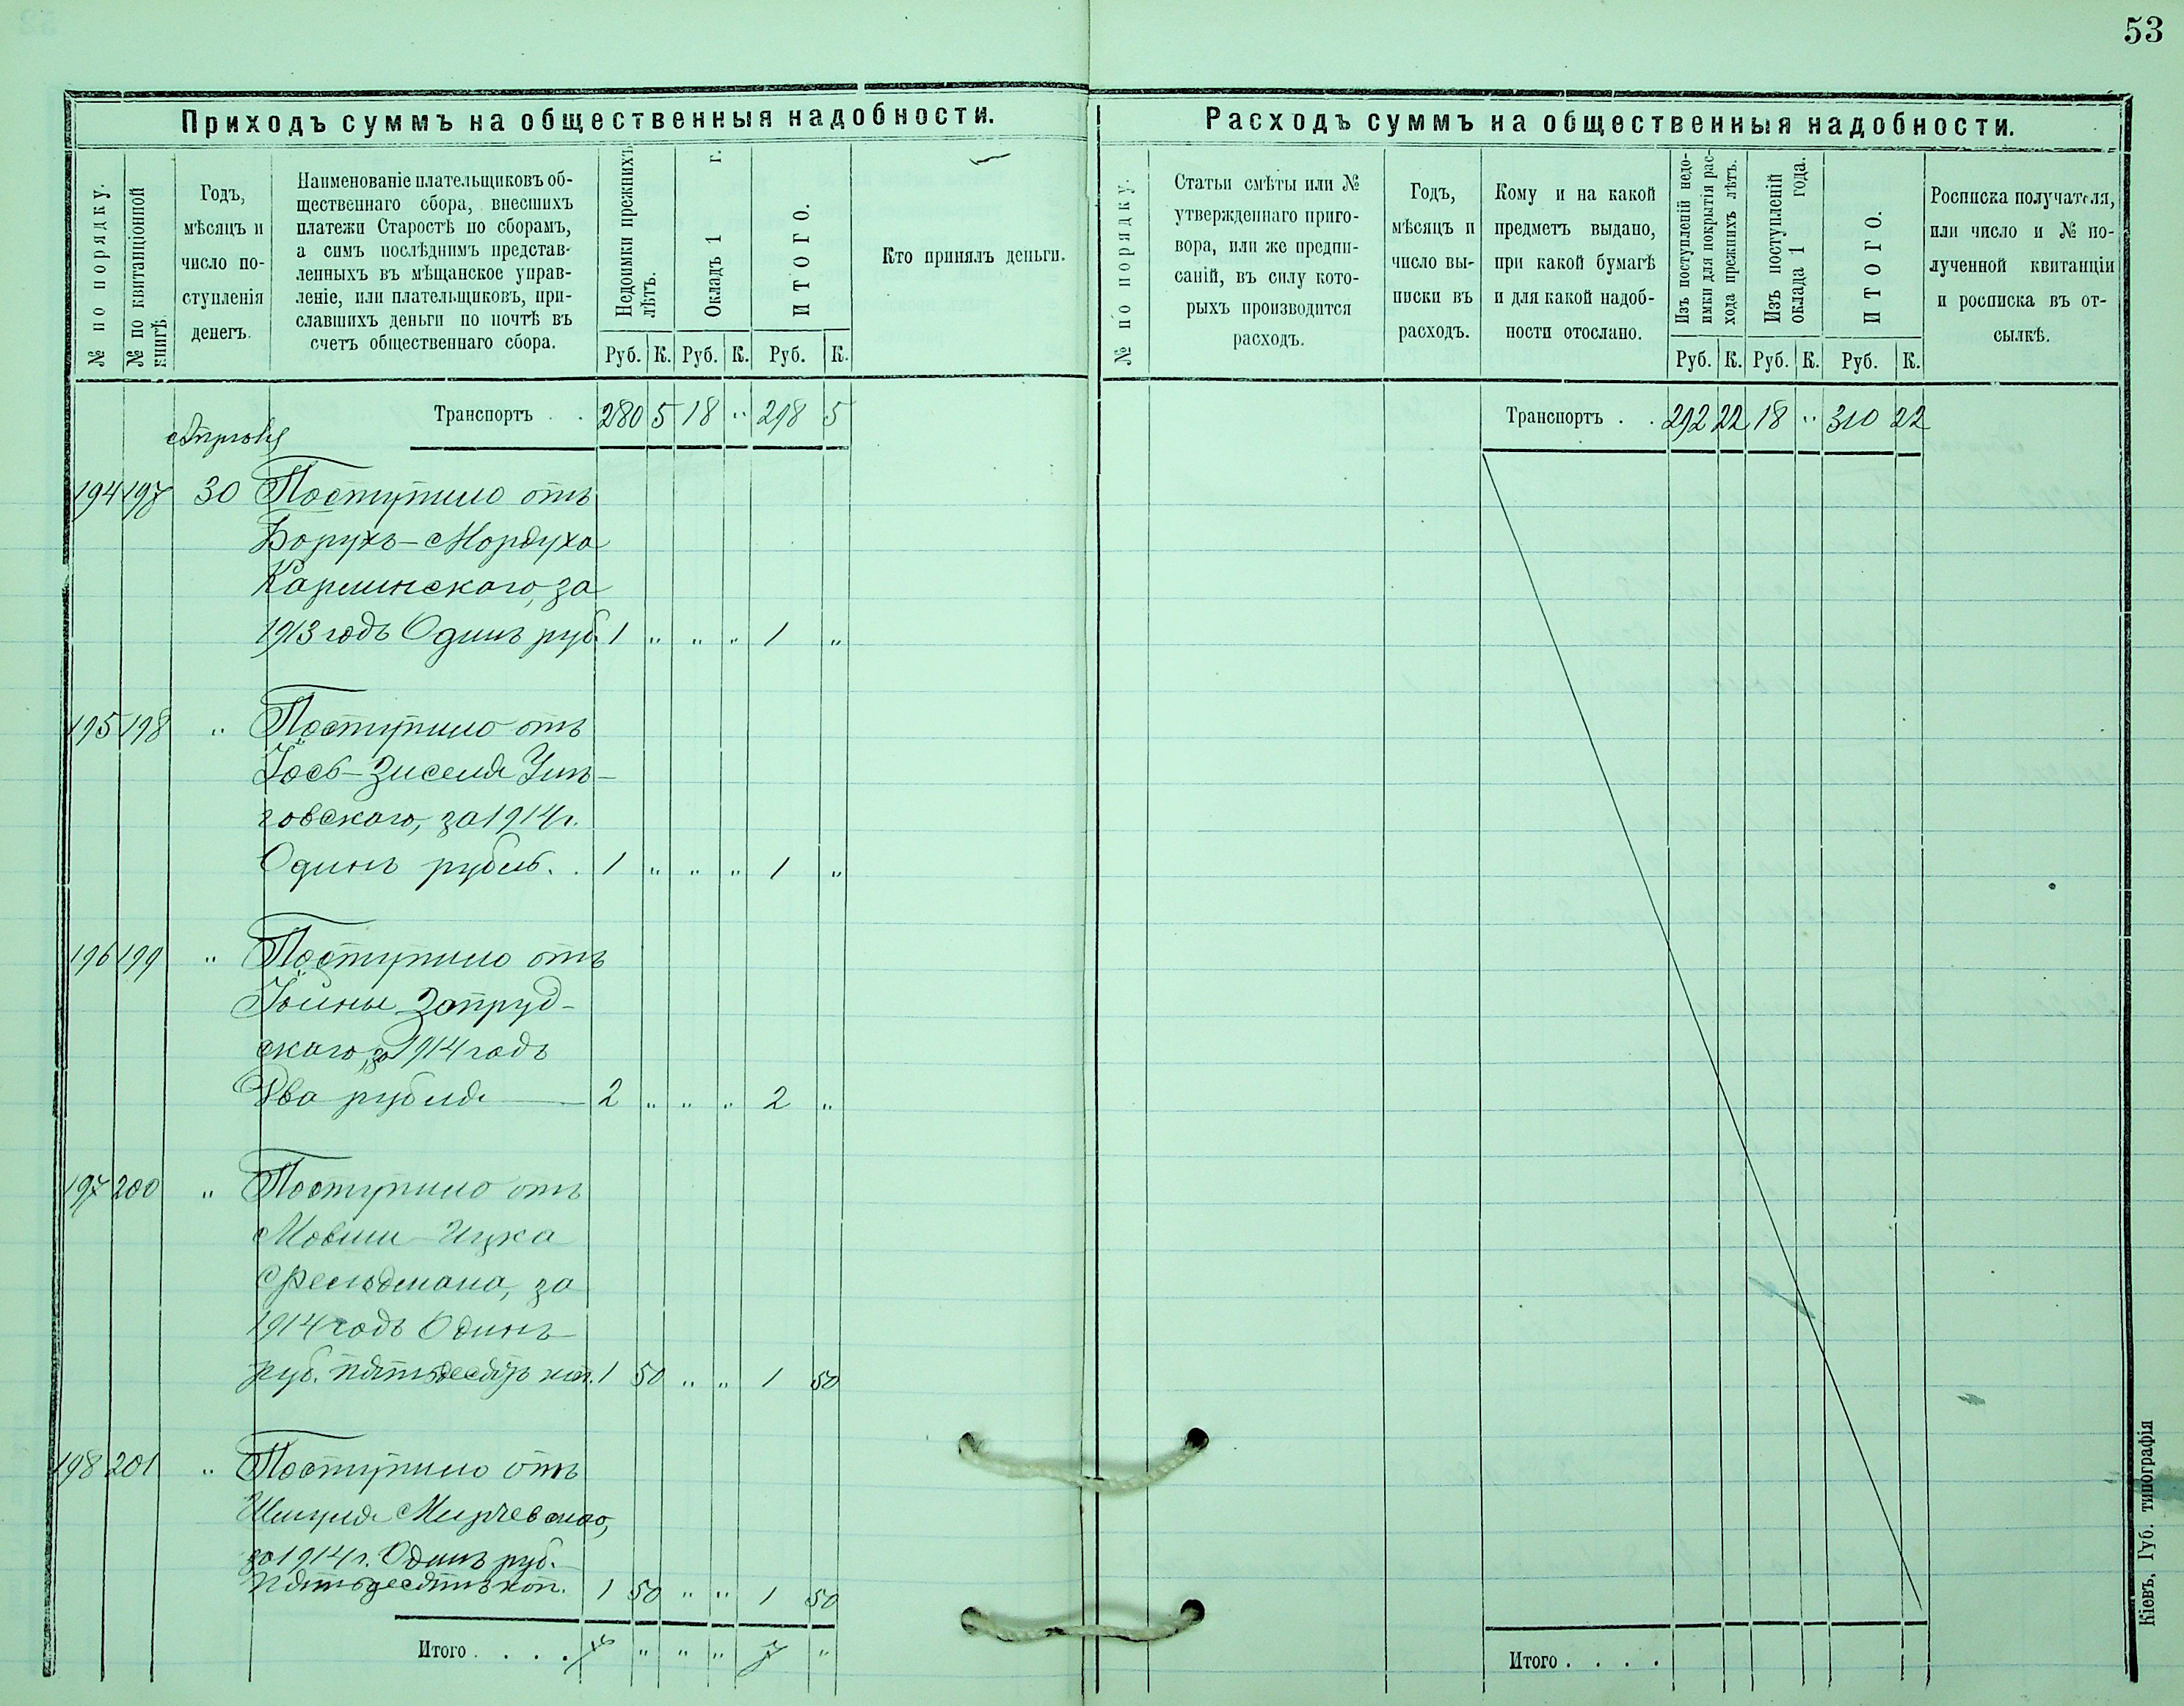 53
Приходъ суммъ на общественныя надобности.
№ по порядку.
№ по квитанціонной
книгѣ.
Годъ,
мѣсяцъ и
число по-
ступленія
денегъ.
Наименованіе плательщиковъ об-
щественнаго сбора, внесшихъ
платежи Старостѣ по сборамъ,
а симъ послѣднимъ представ-
ленныхъ въ мѣщанское управ-
леніе, или плательщиковъ, при-
славшихъ деньги по почтѣ въ
счетъ общественнаго сбора.
Недоимки прежнихъ
лѣтъ.
Окладъ 1 г.
ИТОГО.
Кто принялъ деньги.
Руб. К. Руб. К. Руб. К.
Транспортъ . . 280 5 18 " 298 5
Апрѣля
194 197 30 Поступило отъ
Борухъ-Мордуха
Карлинскаго, за
1913 годъ Одинъ руб. 1 " " " 1 "
195 198 " Поступило отъ
Іось-Зиселя
говскаго, за 1914 г.
Одинъ рубль. . 1 " " " 1 "
196 199 " Поступило отъ
Іойны Запруд-
скаго, за 1914 годъ
Два рубля 2 " " " 2 "
197 200 " Поступило отъ
Мовши-Ицка
Фельдмана, за
1914 годъ Одинъ
руб. пятьдесятъ коп. 1 50 " " 1 50
198 201 " Поступило отъ
Шмуля
за 1914 г. Одинъ руб.
пятьдесятъ коп. 1 50 " " 1 50
Итого . . . . " " " 7 "
Расходъ суммъ на общественныя надобности.
№ по порядку.
Статьи смѣты или №
утвержденнаго приго-
вора, или же предпи-
саній, въ силу кото-
рыхъ производится
расходъ.
Годъ,
мѣсяцъ и
число вы-
писки въ
расходъ.
Кому и на какой
предметъ выдано,
при какой бумагѣ
и для какой надоб-
ности отослано.
Изъ поступленій недо-
имки для покрытія рас-
хода прежнихъ лѣтъ.
Изъ поступленій
оклада 1 года.
ИТОГО.
Росписка получателя,
или число и № по-
лученной квитанціи
и росписка въ от-
сылкѣ.
Руб. К. Руб. К. Руб. К.
Транспортъ . . 292 22 18 " 310 22
Итого . . . .
Кіевъ, Губ. типографія